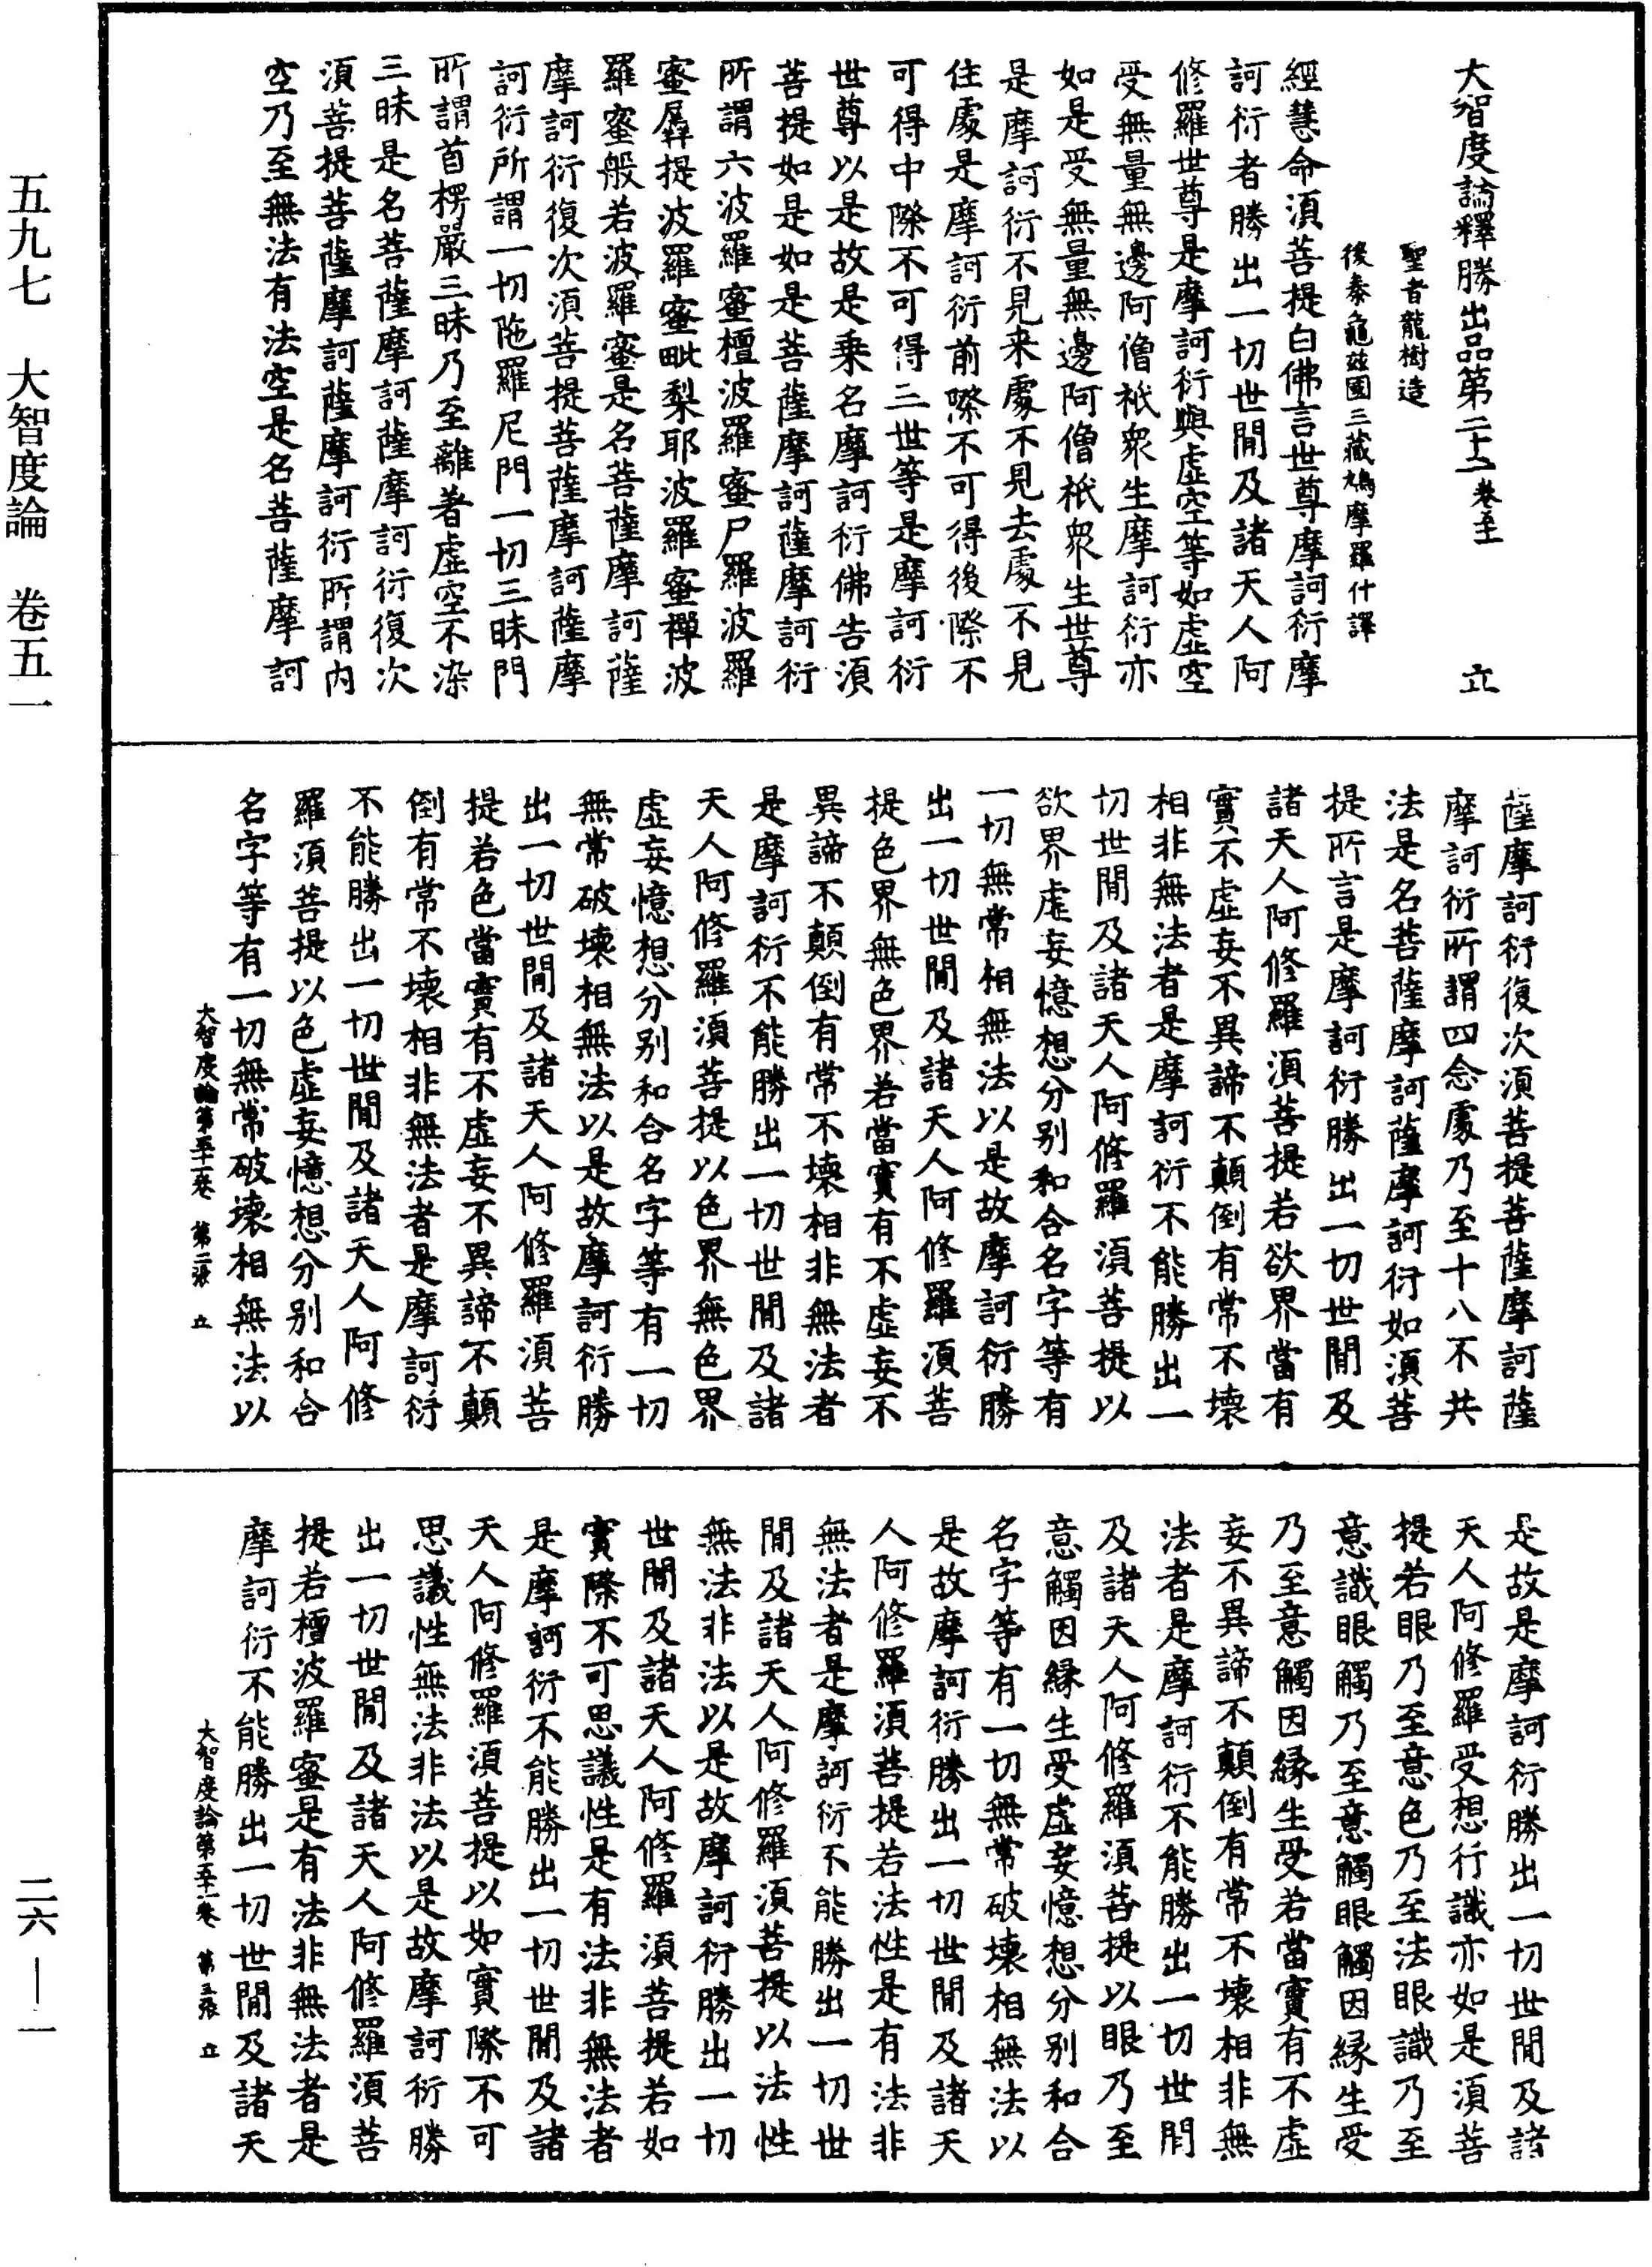 大智度論釋勝出品第二十二卷五十一 立
聖者龍樹造
後秦龜茲國三藏鳩摩羅什譯
經慧命須菩提白佛言世尊摩訶衍摩
訶衍者勝出一切世間及諸天人阿
修羅世尊是摩訶衍與虛空等如虛空
受無量無邊阿僧祇衆生摩訶衍亦
如是受無量無邊阿僧祇衆生世尊
是摩訶衍不見来處不見去處不見
住處是摩訶衍前際不可得後際不
可得中際不可得三世等是摩訶衍
世尊以是故是乗名摩訶衍佛告須
菩提如是如是菩薩摩訶薩摩訶衍
所謂六波羅蜜檀波羅蜜尸羅波羅
蜜羼提波羅蜜毗梨耶波羅蜜禪波
羅蜜般若波羅蜜是名菩薩摩訶薩
摩訶衍復次須菩提菩薩摩訶薩摩
訶衍所謂一切陁羅尼門一切三昧門
所謂首楞嚴三昧乃至離著虛空不染
三昧是名菩薩摩訶薩摩訶衍復次
須菩提菩薩摩訶薩摩訶衍所謂内
空乃至無法有法空是名菩薩摩訶
薩摩訶衍復次須菩提菩薩摩訶薩
摩訶衍所謂四念處乃至十八不共
法是名菩薩摩訶薩摩訶衍如須菩
提所言是摩訶衍勝出一切世間及
諸天人阿修羅須菩提若欲界當有
實不虛妄不異諦不顛倒有常不壞
相非無法者是摩訶衍不能勝出一
切世間及諸天人阿修羅須菩提以
欲界虛妄憶想分别和合名字等有
一切無常相無法以是故摩訶衍勝
出一切世間及諸天人阿修羅須菩
提色界無色界若當實有不虛妄不
異諦不顛倒有常不壞相非無法者
是摩訶衍不能勝出一切世間及諸
天人阿修羅須菩提以色界無色界
虛妄憶想分别和合名字等有一切
無常破壞相無法以是故摩訶衍勝
出一切世間及諸天人阿修羅須菩
提若色當實有不虛妄不異諦不顛
倒有常不壞相非無法者是摩訶衍
不能勝出一切世間及諸天人阿修
羅須菩提以色虛妄憶想分别和合
名字等有一切無常破壞相無法以
大智度論第五十一卷 第二張 立
是故是摩訶衍勝出一切世間及諸
天人阿修羅受想行識亦如是須菩
提若眼乃至意色乃至法眼識乃至
意識眼觸乃至意觸眼觸因緣生受
乃至意觸因緣生受若當實有不虛
妄不異諦不顛倒有常不壞相非無
法者是摩訶衍不能勝出一切世間
及諸天人阿修羅須菩提以眼乃至
意觸因緣生受虛妄憶想分别和合
名字等有一切無常破壞相無法以
是故摩訶衍勝出一切世間及諸天
人阿修羅須菩提若法性是有法非
無法者是摩訶衍不能勝出一切世
間及諸天人阿修羅須菩提以法性
無法非法以是故摩訶衍勝出一切
世間及諸天人阿修羅須菩提若如
實際不可思議性是有法非無法者
是摩訶衍不能勝出一切世間及諸
天人阿修羅須菩提以如實際不可
思議性無法非法以是故摩訶衍勝
出一切世間及諸天人阿修羅須菩
提若檀波羅蜜是有法非無法者是
摩訶衍不能勝出一切世間及諸天
大智度論第五十一卷 第三張 立
五九七 大智度論 卷五一
二六—一